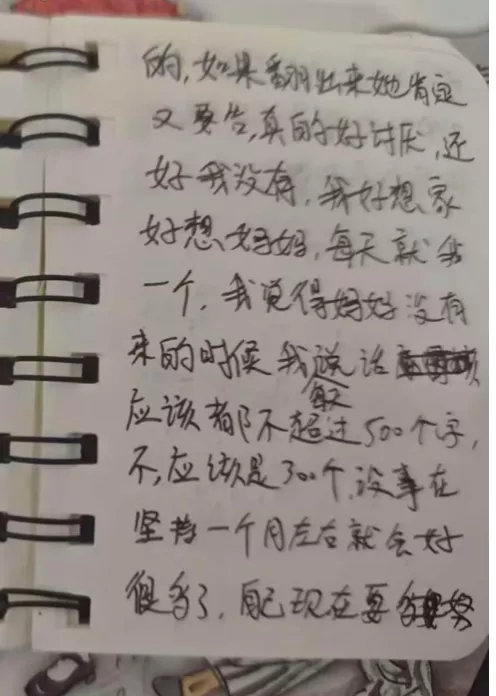 的,如果翻出来她肯定
又要告,真的好讨厌,还
好我没有,我好想家
好想妈妈,每天就我
一个,我觉得妈妈没有
来的时候我说话
每天
应该都不超过500个字,
不,应该是300个,没事在
坚持一个月左右就会好
很多了,自己现在要努